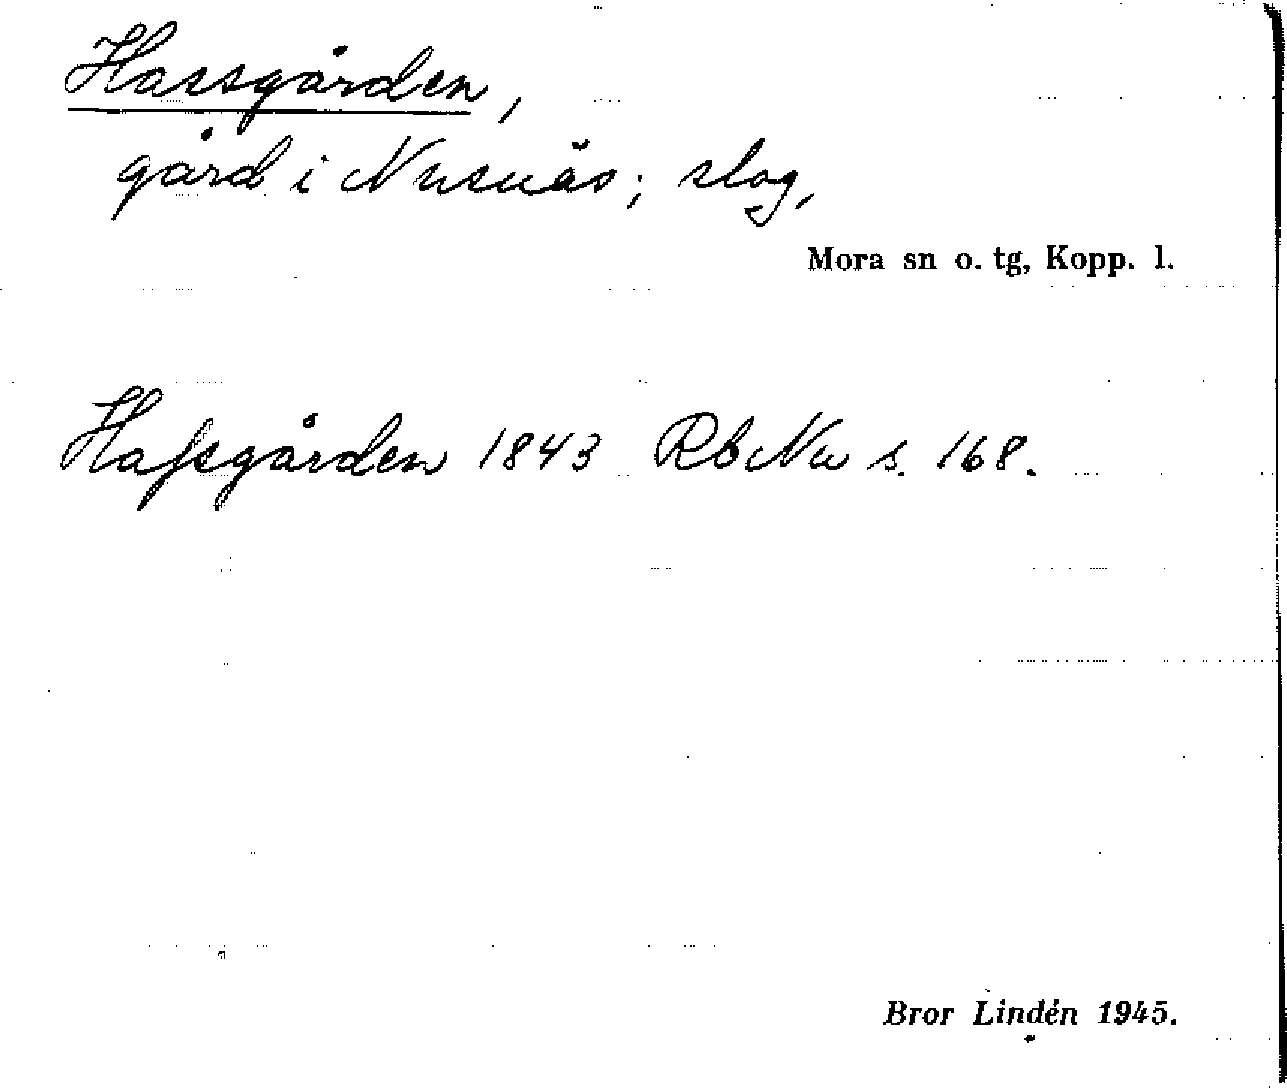 Hassgården,
gård i Nusnäs; slog,
Mora sn o. tg, Kopp. l.
Haſsgården 1843 Rb Nu s. 168.
Bror Lindén 1945.